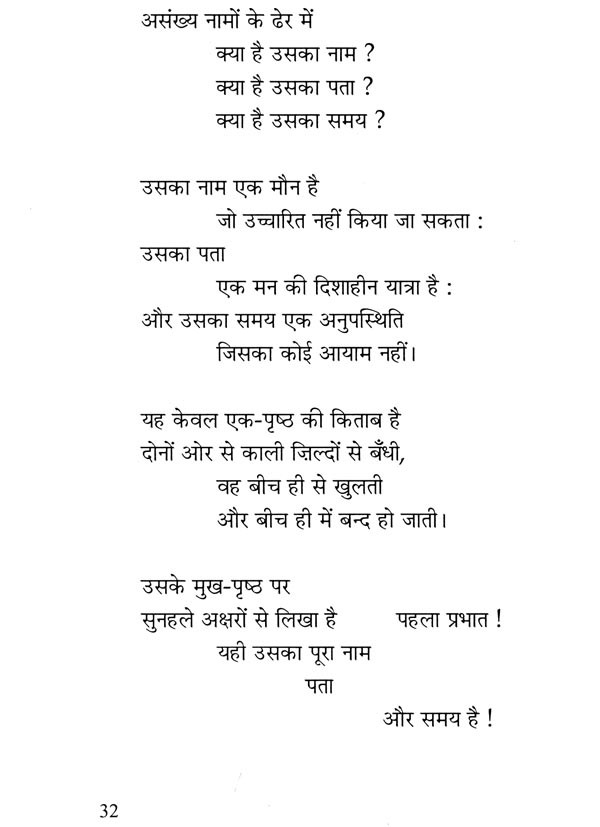 असंख्य नामों के ढेर में
क्या है उसका नाम ?
क्या है उसका पता ?
क्या है उसका समय ?
उसका नाम एक मौन है
जो उच्चारित नहीं किया जा सकता :
उसका पता
एक मन की दिशाहीन यात्रा है :
और उसका समय एक अनुपस्थिति
जिसका कोई आयाम नहीं।
यह केवल एक-पृष्ठ की किताब है
दोनों ओर से काली ज़िल्दों से बँधी,
वह बीच ही से खुलती
और बीच ही में बन्द हो जाती।
उसके मुख-पृष्ठ पर
सुनहले अक्षरों से लिखा है पहला प्रभात !
यही उसका पूरा नाम
पता
और समय है !
32